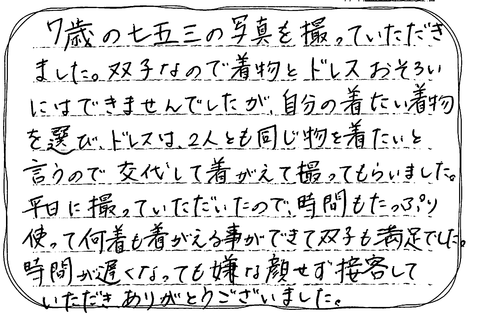 7歳の七五三の写真を撮っていただき
ました。双子なので着物とドレスおそろい
にはできませんでしたが、自分の着たい着物
を選び、ドレスは、2人とも同じ物を着たいと
言うので交代して着がえて撮ってもらいました。
平日に撮っていただいたので、時間もたっぷり
使って何着も着がえる事ができて双子も満足でした。
時間が遅くなっても嫌な顔せず接客して
いただきありがとうございました。